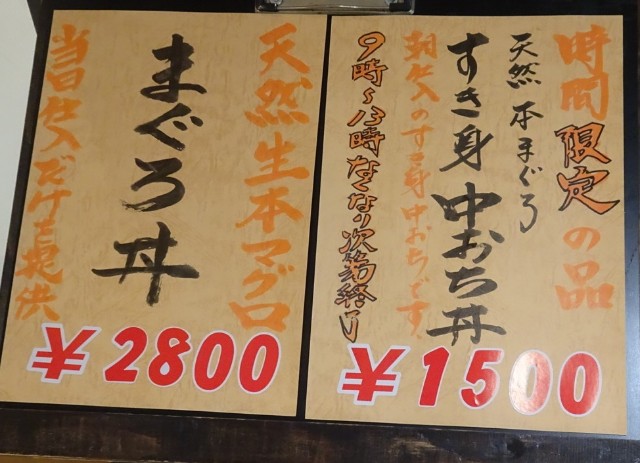 時間限定の品
天然本まぐろ
すき身中おち丼
朝仕入のすき身中おちです
9時〜13時なくなり次第終了
¥1500
天然生本マグロ
まぐろ丼
当日仕入だけを提供
¥2800